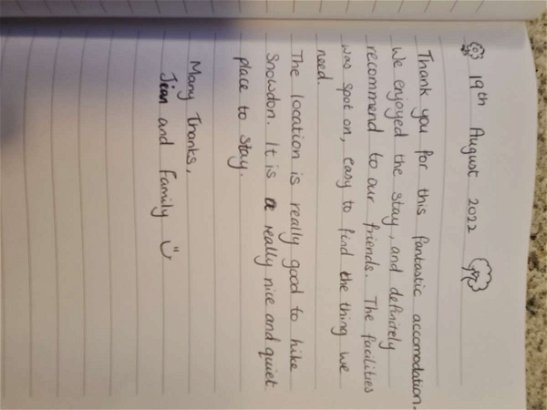 19th August 2022
Thank you for this fantastic accomodation.
We enjoyed the stay, and definitely
recommend to our friends. The facilities
was spot on, easy to find the thing we
need.
The location is really good to hike
Snowdon. It is a really nice and quiet
place to stay.
Many Thanks,
Jian and Family